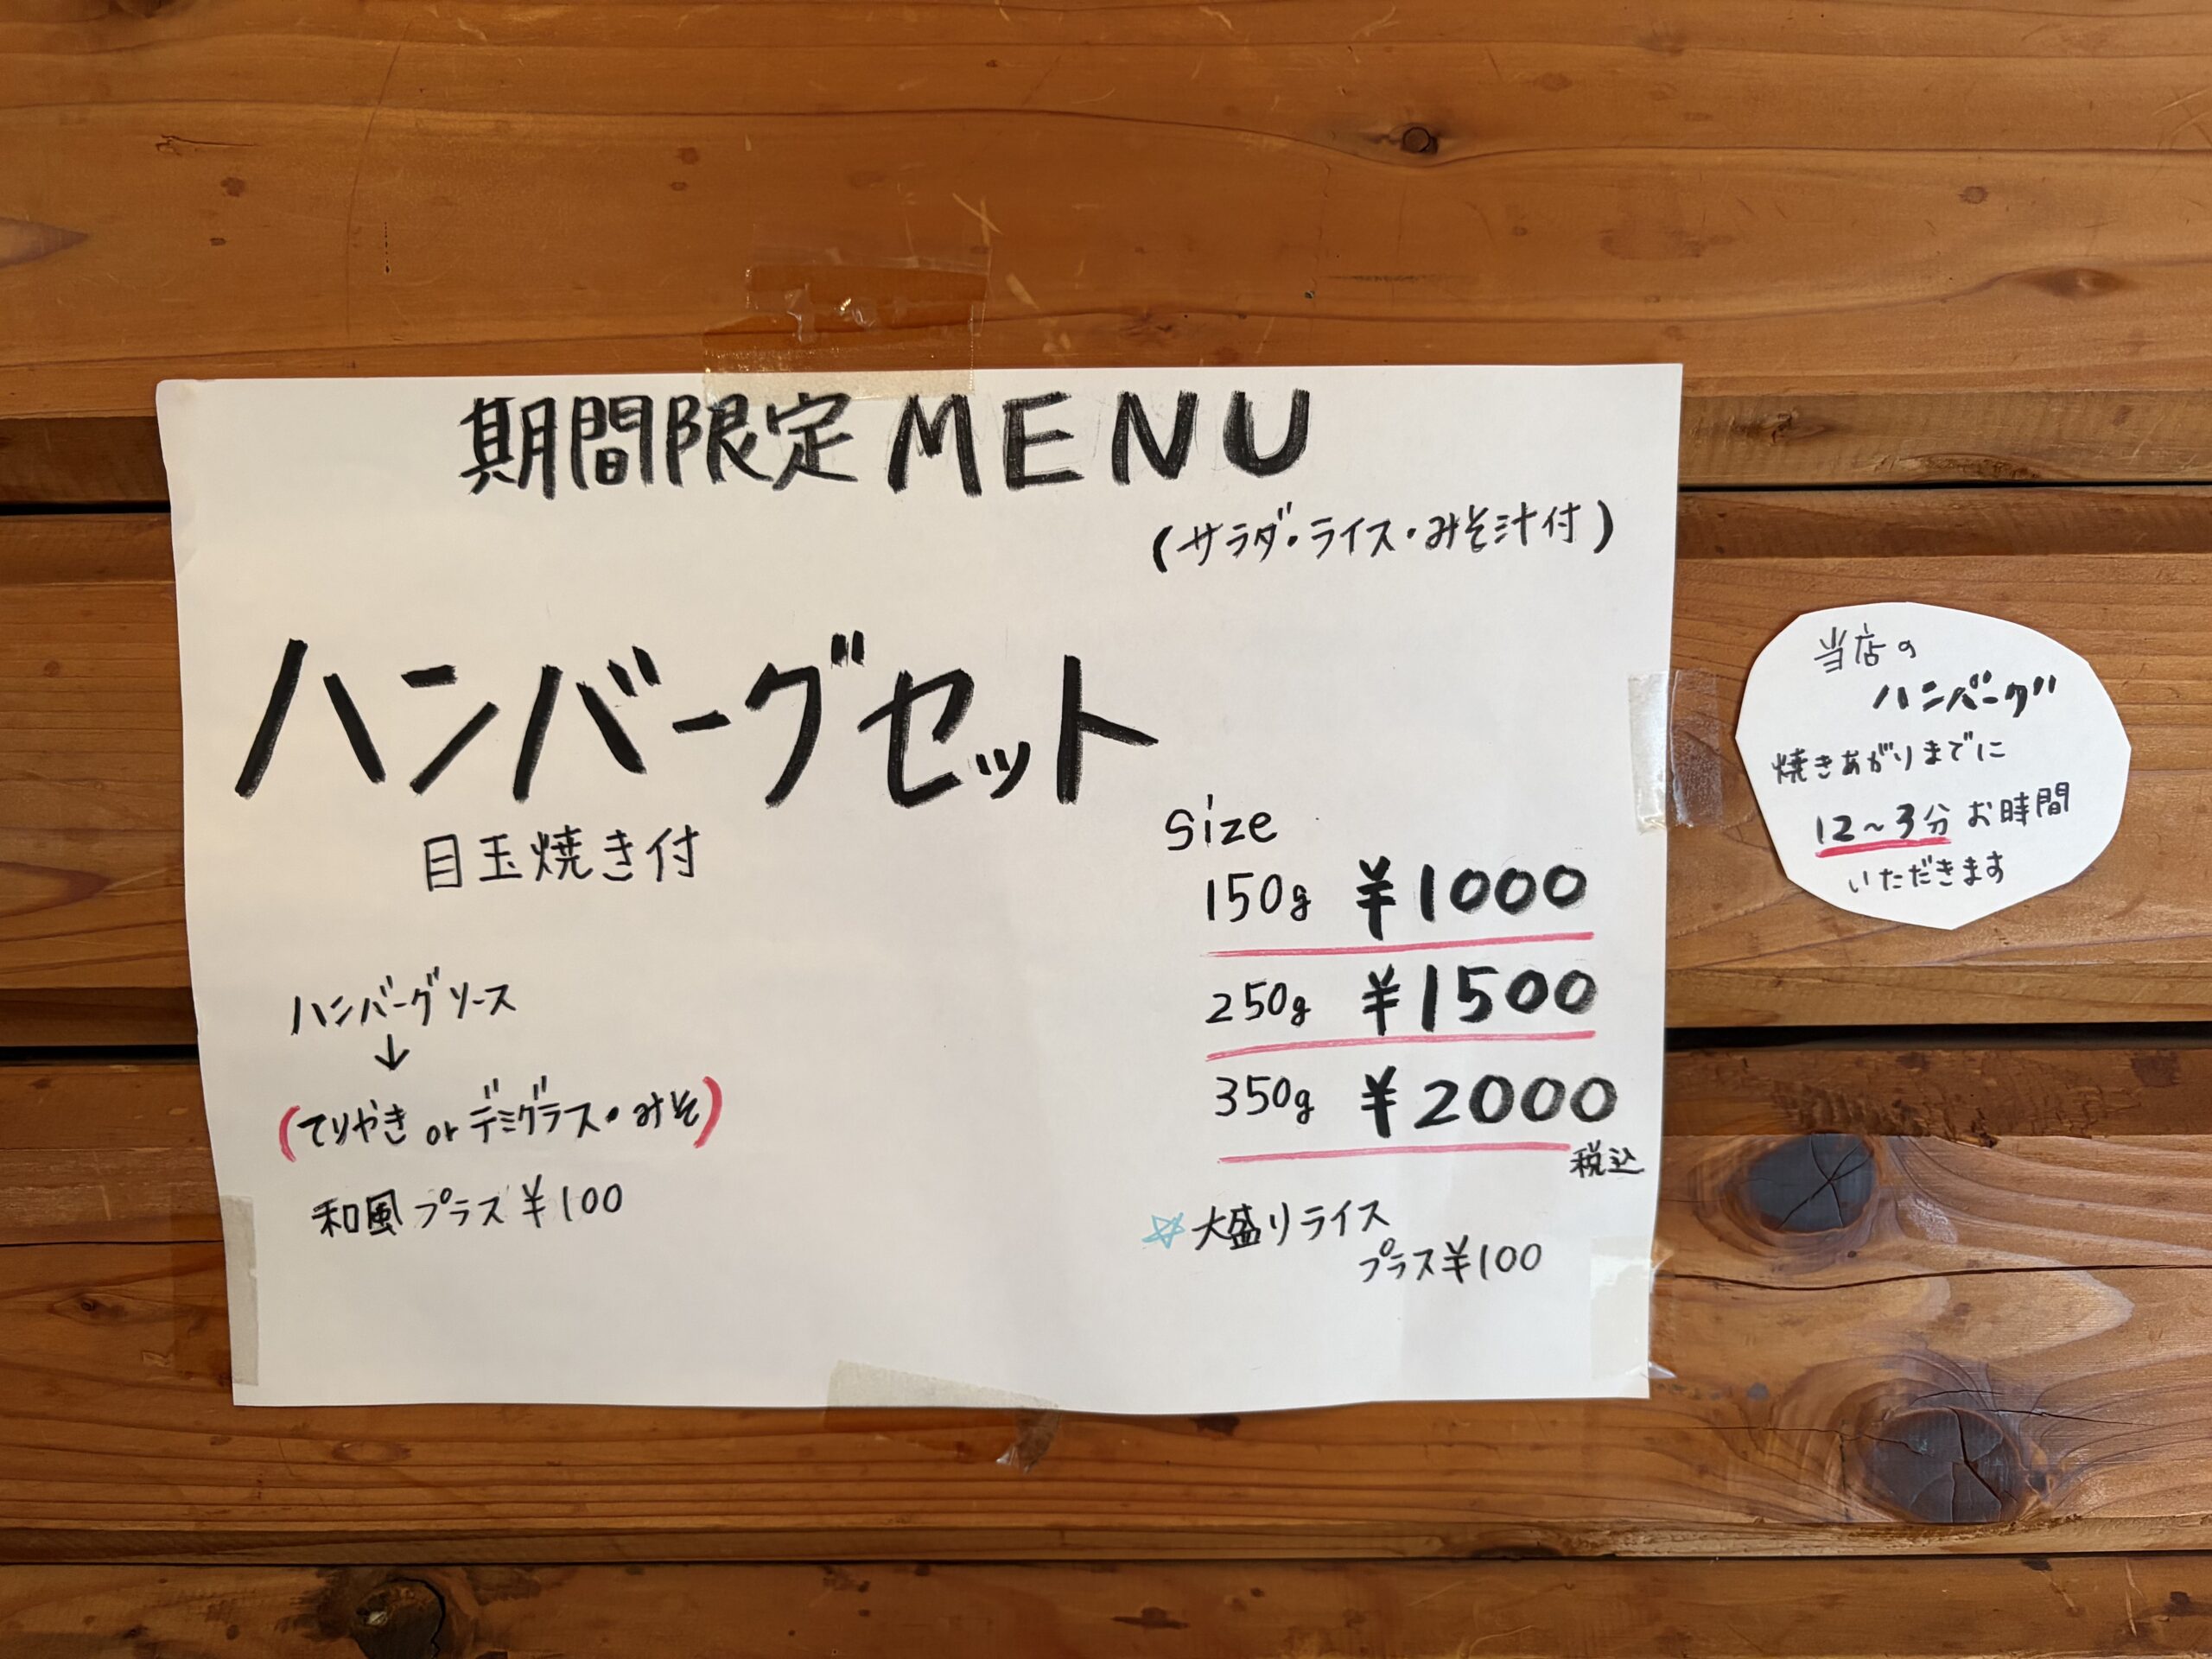 期間限定MENU
(サラダ・ライス・みそ汁付)
ハンバーグセット
目玉焼き付
size
150g ¥1000
250g ¥1500
350g ¥2000
税込
☆大盛りライス
プラス¥100
ハンバーグソース
↓
(てりやき or デミグラス・みそ)
和風プラス¥100
当店の
ハンバーグ
焼きあがりまでに
12~3分お時間
いただきます